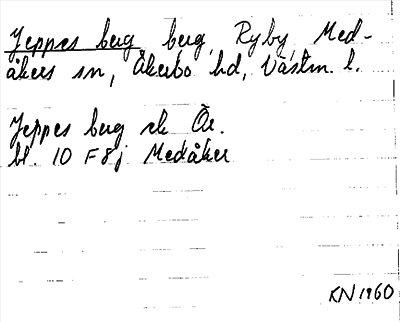 Jeppes berg berg, Ryby, Med-
åkers sn, Åkerbo hd, Västm. l.
Jeppes berg ek Ör.
bl. 10 F 8j Medåker
KN 1960